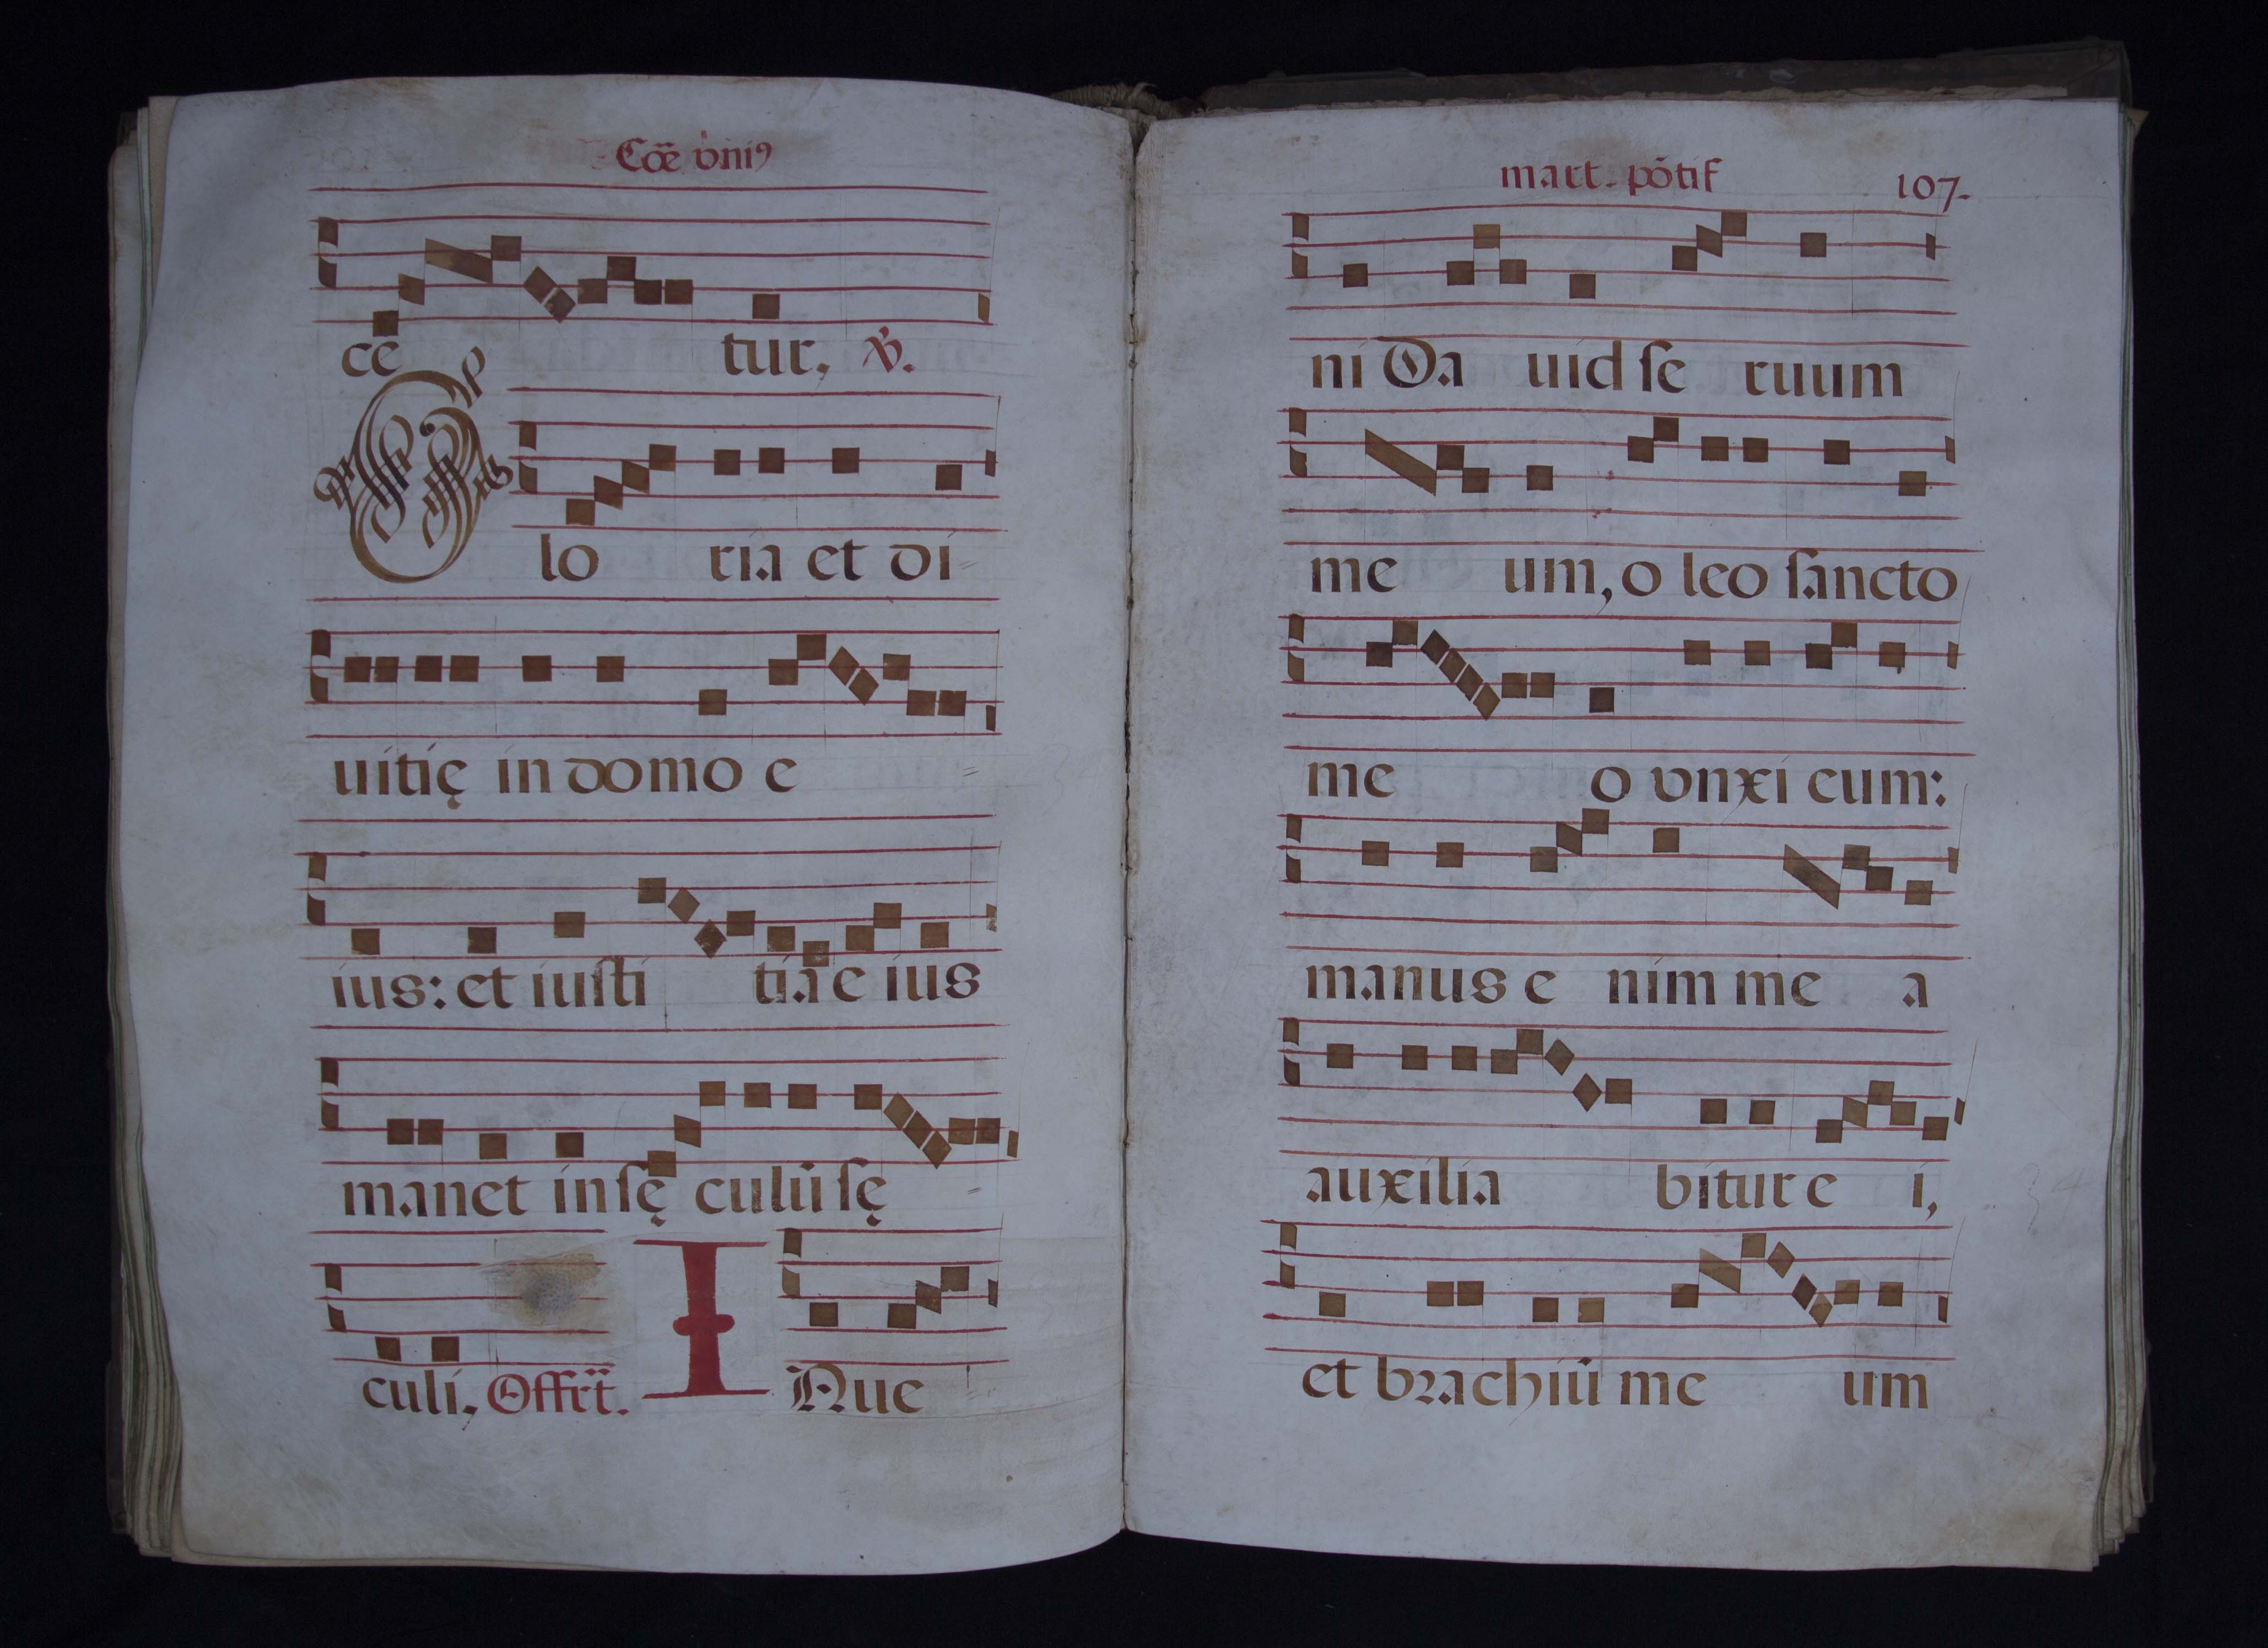 Cōē vniꝰ
ce tur, ℣.
Glo ria et di=
uitię in domo e =
ius: et iuſti tia e ius
manet in ſę culū ſę =
culi, Offrt̄. I Nue
mart. pōtif 107.
ni Da uid ſe ruum
me um, o leo ſancto
me o vnxi eum:
manus e nim me a
auxilia bitur e i,
et brachiū me um